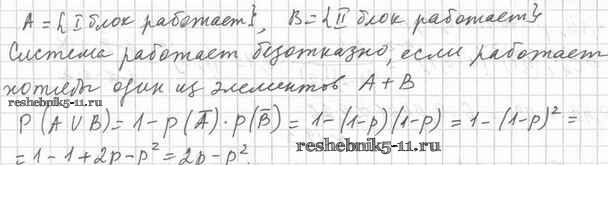 A = {I блок работает}, B = {II блок работает}
Система работает безотказно, если работает
хотябы один из элементов A + B
reshebnik5-11.ru
P(A ∪ B) = 1 - p(Ā) · p(B̄) = 1 - (1-p)(1-p) = 1 - (1-p)² =
= 1 - 1 + 2p - p² = 2p - p².
reshebnik5-11.ru